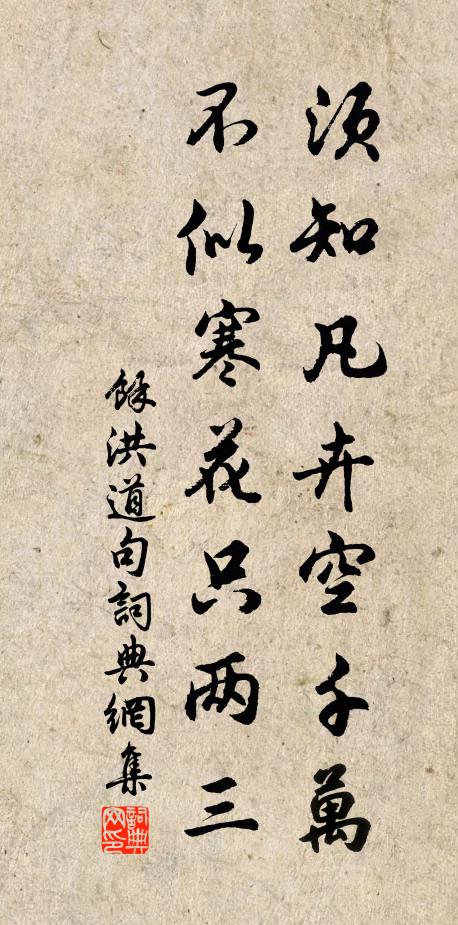 須知凡卉空千萬
不似寒花只两三
餘洪道句詞典網集
詞典网印